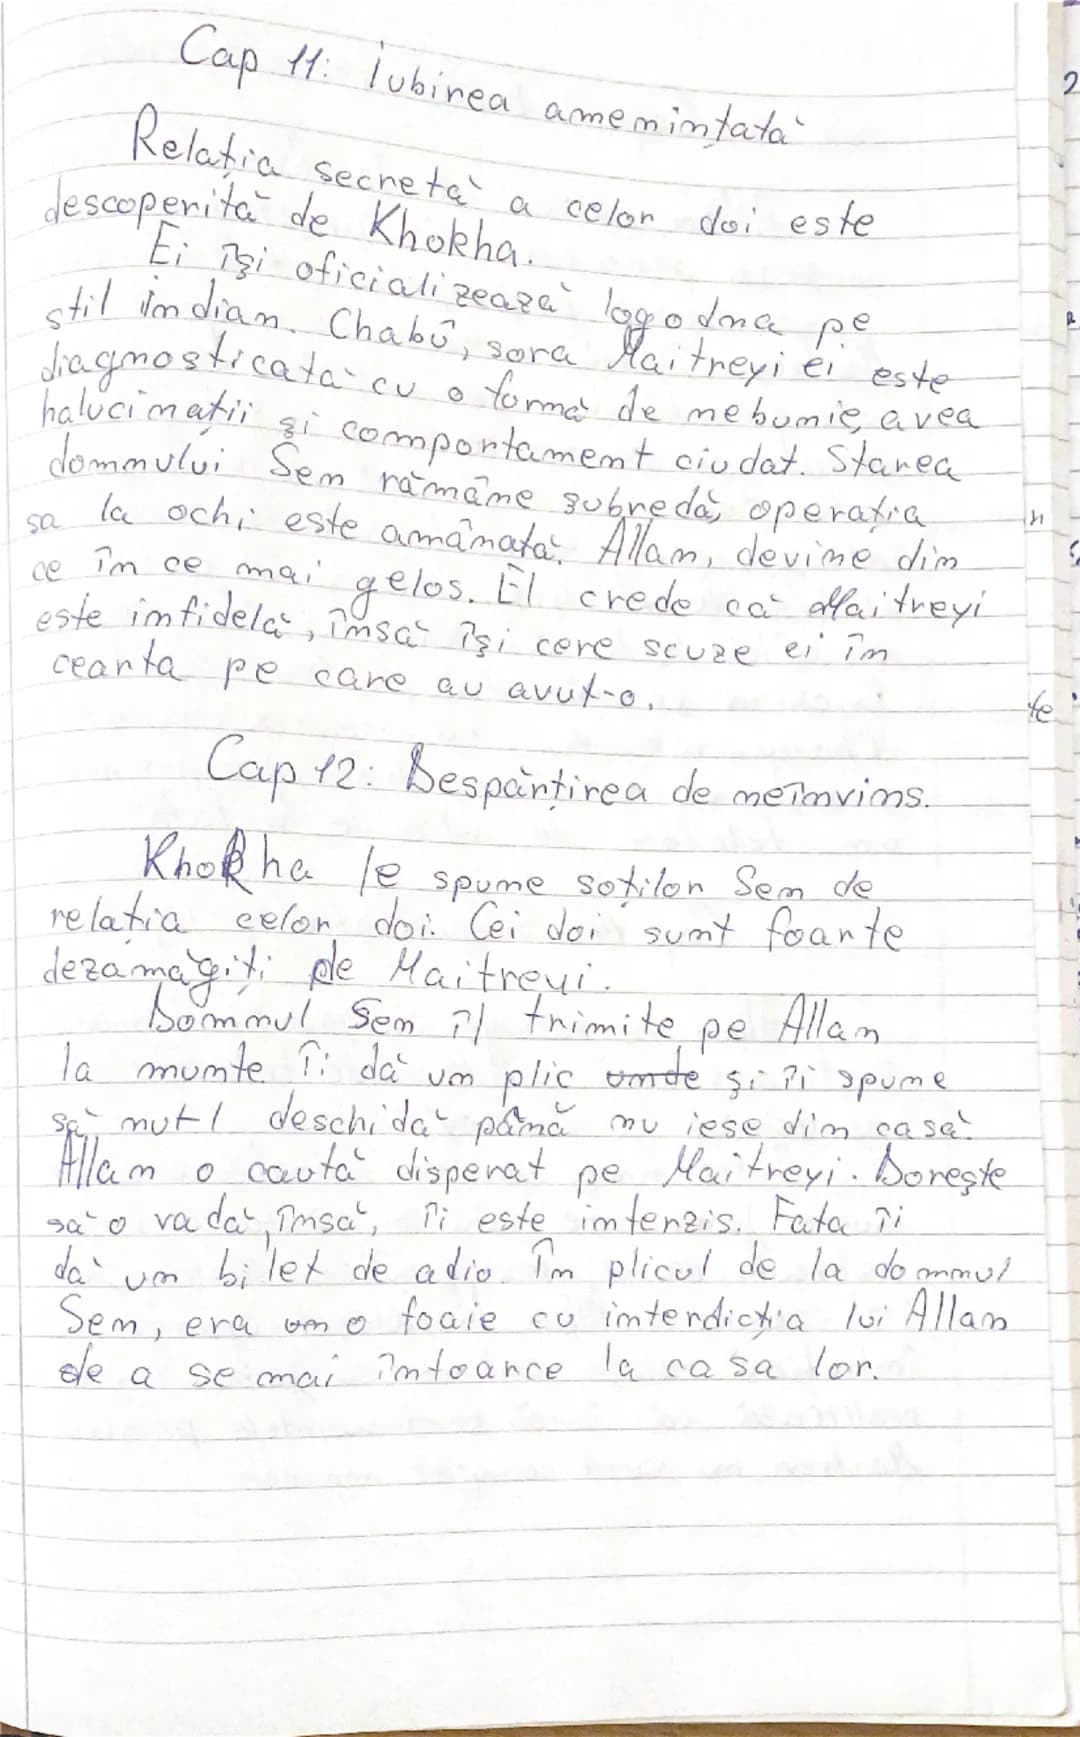 Cap 11: Iubirea amenințată
Relația secretă a celor doi este
descoperită de Khokha.
Ei își oficializează logodna pe
stil indian. Chabū, sora Maitreyi ei este
diagnosticată cu o formă de nebunie, avea
halucinații și comportament ciudat. Starea
domnului Sen rămâne șubredă, operația
sa la ochi este amânată. Allan, devine din
ce în ce mai gelos. El crede că Maitreyi
este infidelă, însă își cere scuze ei în
cearta pe care au avut-o.
Cap 12: Despărțirea de neînvins.
Khokha le spune soților Sen de
relația celor doi. Cei doi sunt foarte
dezamăgiți de Maitreyi.
Domnul Sen îl trimite pe Allan
la munte. Îi dă un plic unde și îi spune
să nu-l deschidă până nu iese din casă.
Allan o caută disperat pe Maitreyi. Dorește
să o vadă, însă, îi este interzis. Fata îi
dă un bilet de adio. În plicul de la domnul
Sen, era un o foaie cu interdicția lui Allan
de a se mai întoarce la casa lor.